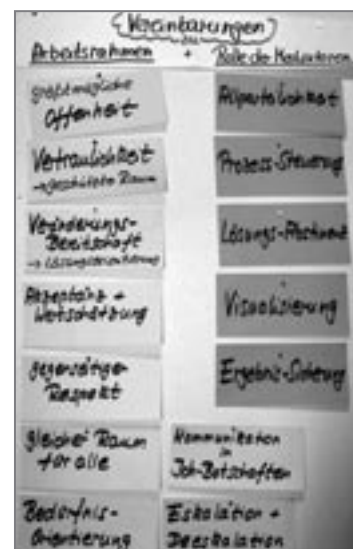 Vereinbarungen
Arbeitsrahmen + Rolle der Mediatoren
größtmögliche
Offenheit
Vertraulichkeit
→ geschützter Raum
Veränderungs-
Bereitschaft
→ Lösungsorientierung
Akzeptanz +
Wertschätzung
gegenseitiger
Respekt
gleicher Raum
für alle
Bedürfnis-
Orientierung
Allparteilichkeit
Prozess-Steuerung
Lösungs-
Visualisierung
Ergebnis-Sicherung
Kommunikation
in
Ich-Botschaften
Eskalation +
Deeskalation